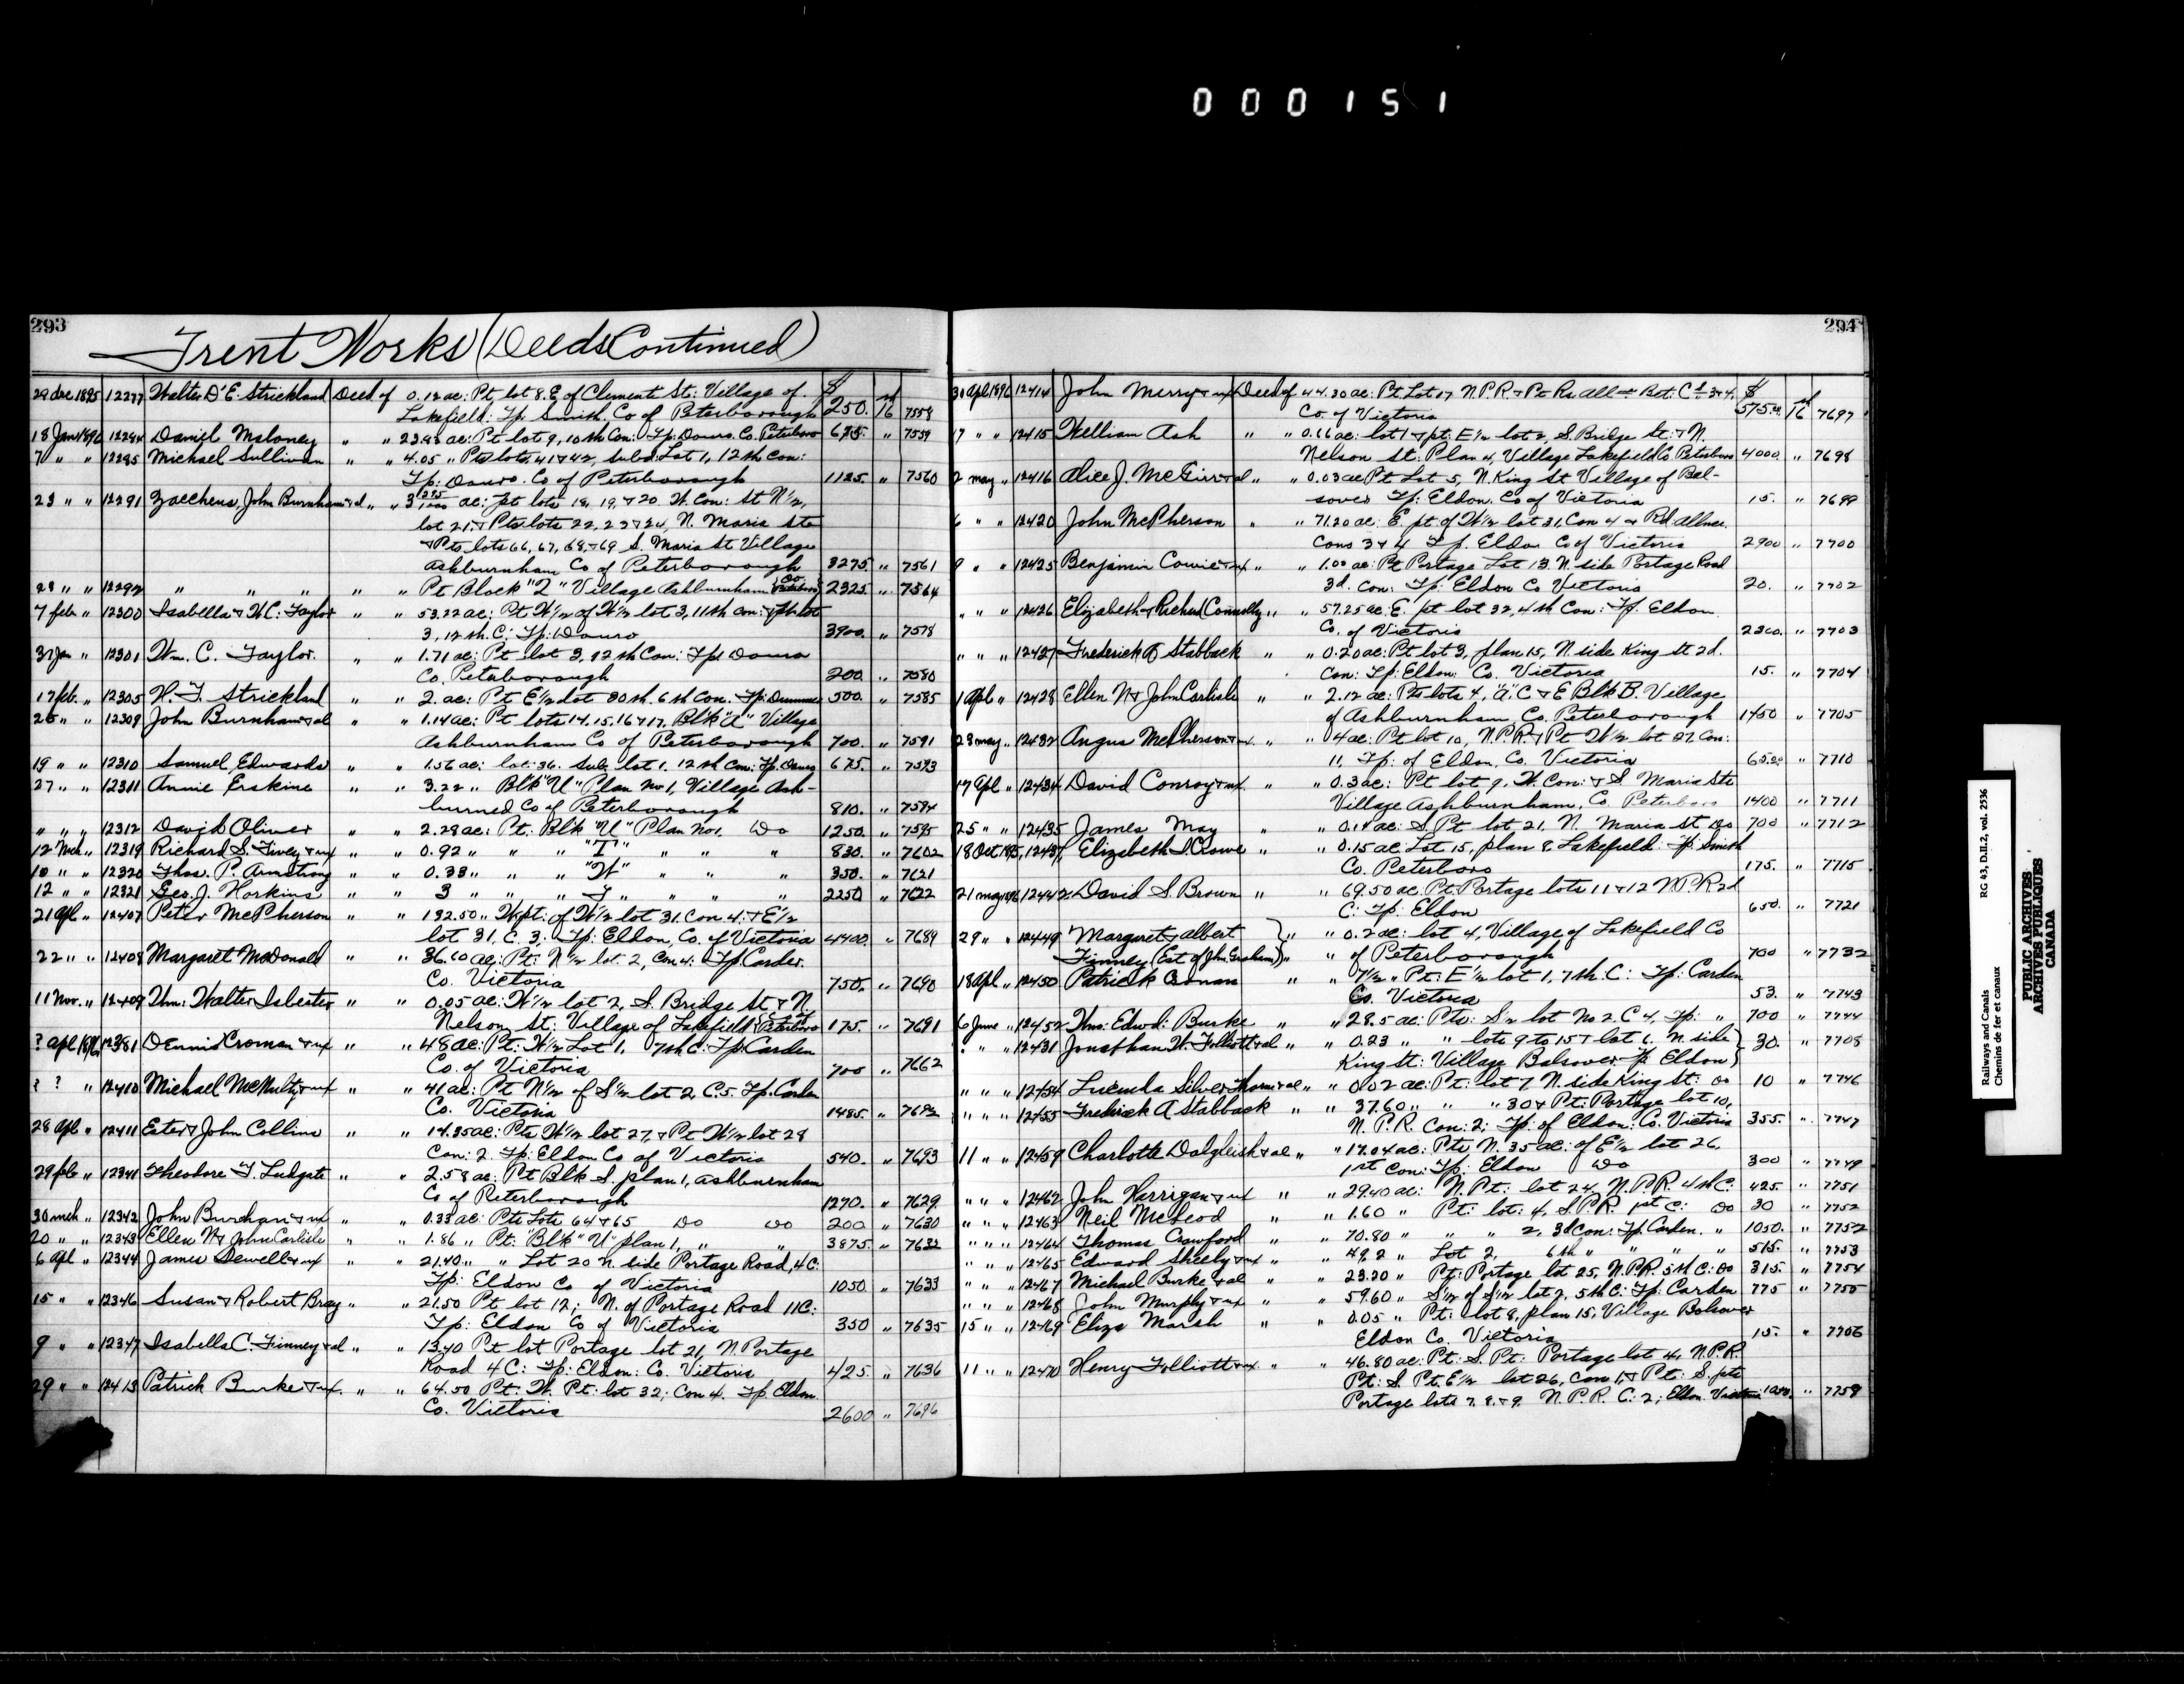 000151
293
Trent Works (Deeds Continued)
29 Dec 1895 12277 Walter D'E. Strickland Deed of 0.12 ac: Pt lot 8. E. of Clementi St: Village of $
Lakefield: Tp. Smith. Co of Peterborough 250. 16 7558
18 Jan 1896 12284 Daniel Maloney " " 23.98 ac: Pt lot 9, 10th Con: Tp. Douro. Co. Peterboro 675. " 7559
7 " " 12285 Michael Sullivan " " 4.05 " Pts lots 41 & 42, subd: Lot 1, 12th Con:
Tp: Douro. Co of Peterborough 1125. " 7560
23 " " 12291 Zaccheus, John Burnham & al " " 3 295/1000 ac: pt lots 18, 19, & 20 W. Con: St N½,
lot 21, & Pts lots 22, 23 & 24, N. Maria Sts
& Pts lots 66, 67, 68, & 69 S. Maria St Village
Ashburnham Co of Peterborough 3275. " 7561
23 " " 12292 " " " " " Pt Block "Z" Village Ashburnham Co Peterboro 2325. " 7564
7 feb. " 12300 Isabella & W.C. Taylor " " 53.22 ac: Pt W½ of W½ lot 3, 11th Con: & Pt lot
3, 12th C: Tp: Douro 3900. " 7578
31 Jan " 12301 Wm. C. Taylor. " " 1.71 ac: Pt lot 3, 12th Con: Tp: Douro
Co. Peterborough 200. " 7580
17 feb. " 12305 H. T. Strickland " " 2. ac: Pt E½ lot 30th. 6th Con. Tp: Dummer 500. " 7585
26 " " 12309 John Burnham & al " " 1.14 ac: Pt lots 14. 15. 16 & 17, Blk "A" Village
Ashburnham Co of Peterborough 700. " 7591
19 " " 12310 Samuel Edwards " " 1.56 ac: lot: 36. Sub. lot 1. 12th Con: Tp. Douro 675. " 7593
27 " " 12311 Annie Erskine " " 3.22 " Blk "U" Plan No 1, Village Ash-
burned Co of Peterborough 810. " 7594
" " " 12312 David Oliver " " 2.28 ac: Pt: Blk "U" Plan No 1. Do 1250. " 7595
12 Mch " 12319 Richard S. Fivey & ux " " 0.92 " " " "T" " " " 830. " 7602
10 " " 12320 Thos. P. Armstrong " " 0.38 " " " "W" " " " 350. " 7621
12 " " 12321 Geo. J. Horkins " " 3 " " " T " " " 2250 " 7622
21 Apl " 12407 Peter McPherson " " 192.50 " W.pt: of W½ lot 31. Con. 4. & E½
lot 31, C. 3. Tp: Eldon, Co. of Victoria 4400. " 7689
22 " " 12408 Margaret McDonald " " 36.60 ac: Pt: N½ lot. 2, Con 4: Tp. Carden.
Co. Victoria 750. " 7690
11 Nov. " 12409 Wm: Walter Isbester " " 0.05 ac: W½ lot 2, S. Bridge St & N
Nelson St: Village of Lakefield Co of Peterboro 175. " 7691
? Apl 1896 12381 Dennis Cronan & ux " " 48 ac: Pt: W½ Lot 1, 7th C: Tp: Carden
Co. of Victoria 700 " 7662
? ? " 12410 Michael McNulty & ux " " 41 ac: Pt N½ of S½ lot 2, C. 5. Tp. Carden
Co. Victoria 1485. " 7692
28 Apl " 12411 Ester & John Collins " " 14.35 ac: Pts W½ lot 27, & Pt W½ lot 28
Con: 2. Tp: Eldon Co of Victoria 540. " 7693
29 feb " 12341 Theodore T. Ludgate " " 2.58 ac: Pt Blk S. plan 1, Ashburnham
Co of Peterborough 1270. " 7629
30 mch " 12342 John Burcham & ux " " 0.33 ac: Pts Lots 64 & 65 Do Do 200 " 7630
20 " " 12343 Ellen N & John Carlisle " " 1.86 " Pt: "Blk "U" plan 1, " " 3875. " 7632
6 Apl " 12344 James Dewell & ux " " 21.40 " " Lot 20 N. side Portage Road, 4 C:
Tp: Eldon Co of Victoria 1050 " 7633
15 " " 12346 Susan & Robert Bray " " 21.50 Pt lot 12; N. of Portage Road 11 C:
Tp: Eldon Co of Victoria 350 " 7635
9 " " 12347 Isabella C. Finney & al " " 13.40 Pt lot Portage lot 21, N. Portage
Road 4 C: Tp: Eldon: Co. Victoria 425. " 7636
29 " " 12413 Patrick Burke & ux. " " 64.50 Pt: W. Pt: lot 32; Con 4. Tp. Eldon.
Co. Victoria 2600 " 7696
294
30 Apl 1896 12414 John Merry & ux Deed of 44.30 ac: Pt Lot 17 N.P.R. & Pt Rd. Allce Bet: Cs 3 & 4. $
Co. of Victoria 575.00 16 7697
17 " " 12415 William Ash " " 0.16 ac: lot 1 & pt: E½ lot 2, S. Bridge St: & N.
Nelson St: Plan 4, Village Lakefield Co Peterboro 4000. " 7698
2 may " 12416 Alice J. McGirr & al " " 0.03 ac Pt Lot 5, N. King St Village of Bal-
sover Tp: Eldon. Co of Victoria 15. " 7699
6 " " 12420 John McPherson " " 71.20 ac: E. pt of W½ lot 31, Con 4 & Rd. allnce.
Cons 3 & 4 Tp. Eldon Co of Victoria 2900 " 7700
9 " " 12425 Benjamin Cowie & ux " " 1.00 ac: Pt Portage Lot 13 N. side Portage Road
3d. Con: Tp: Eldon Co Victoria 20. " 7702
" " " 12426 Elizabeth & Richard Connolly " " 57.25 ac: E. pt lot 32, 4th Con: Tp. Eldon
Co. of Victoria 2300. " 7703
" " " 12427 Frederick A Stabback " " 0.20 ac: Pt lot 3, plan 15, N. side King St 2d.
Con: Tp: Eldon: Co. Victoria 15. " 7704
1 Apl " 12428 Ellen N & John Carlisle " " 2.12 ac: Pts lots 4, "A" C & E Blk B. Village
of Ashburnham, Co. Peterborough 1450 " 7705
23 may " 12432 Angus McPherson & ux. " " 04 ac: Pt lot 10, N.P.R. & Pt W½ lot 27 Con:
11, Tp: of Eldon, Co. Victoria 60.20 " 7710
17 Apl " 12434 David Conroy & ux. " " 0.3 ac: Pt lot 9, W. Con: & S Maria Sts
Village Ashburnham, Co. Peterboro 1400 " 7711
25 " " 12435 James May " " 0.14 ac: S. Pt lot 21, N. Maria St Do 700 " 7712
18 Oct 1895, 12437 Elizabeth S. Crowe " " 0.15 ac Lot 15, plan 8 Lakefield: Tp: Smith
Co. Peterboro 175. " 7715
21 may 1896 12442 David S. Brown " " 69.50 ac Pt Portage lots 11 & 12 N.P.R 2d
C: Tp: Eldon 650. " 7721
29 " " 12449 Margaret & Albert " " 0.2 ac: lot 4, Village of Lakefield Co
Finney (Est of John Graham) " " of Peterborough 700 " 7732
18 Apl " 12450 Patrick Cronan " " 7½ " Pt: E½ lot 1, 7th. C: Tp: Carden
Co. Victoria 53. " 7743
6 June " 12452 Thos: Edwd: Burke " " 28.5 ac: Pts: S½ lot No 2. C 4, Tp: " 700 " 7744
" " 12431 Jonathan W. Folliott & al " " 0.23 " " lots 9 to 15 & lot 6. N. side 30. " 7708
King St: Village Balsover Tp Eldon
" " " 12454 Lucinda Silverthorn & al " " 0.02 ac: Pt: lot 7 N. side King St: Do 10 " 7746
" " " 12455 Fredrick A Stabback " " 37.60 " " " 30 & Pt: Portage lot 10,
N. P. R. Con: 2; Tp: of Eldon: Co. Victoria 355. " 7747
11 " " 12459 Charlotte Dalgleish & al " " 17.04 ac: Pts N. 35 ac: of E½ lot 26,
1st Con: Tp: Eldon Do 300 " 7749
" " " 12462 John Harrigan & ux " " 29.40 ac: N. Pt: lot 24, N.P.R. 4th C: 425. " 7751
" " " 12463 Neil McLeod " " 1.60 " Pt: lot: 4, S.P.R. 1st C: Do 30 " 7752
" " " 12464 Thomas Crawford " " 70.80 " " " 2, 3d Con: Tp. Carden. " 1050. " 7752
" " " 12465 Edward Sheehy & ux " " 49.2 " Lot 2, 6th " " " " 515. " 7753
" " " 12467 Michael Burke & al " " 23.20 " Pt: Portage lot 25, N.P.R. 5th C: Do 315. " 7754
" " " 12468 John Murphy & ux " " 59.60 " S½ of S½ lot 2, 5th C: Tp: Carden 775 " 7755
15 " " 12469 Eliza Marsh " " 0.05 " Pt: lot 8, plan 15, Village Bolsover
Eldon Co. Victoria 15. " 7756
11 " " 12470 Henry Folliott & ux " " 46.80 ac: Pt: S. Pt: Portage lot 4, N.P.R.
Pt: S. Pt. E½ lot 26, Con 1, & Pt: S. pts
Portage lots 7. 8. & 9. N. P. R. C: 2; Eldon. Victoria 1250. " 7759
Railways and Canals
Chemins de fer et canaux
RG 43, D.II.2, vol. 2536
PUBLIC ARCHIVES
ARCHIVES PUBLIQUES
CANADA